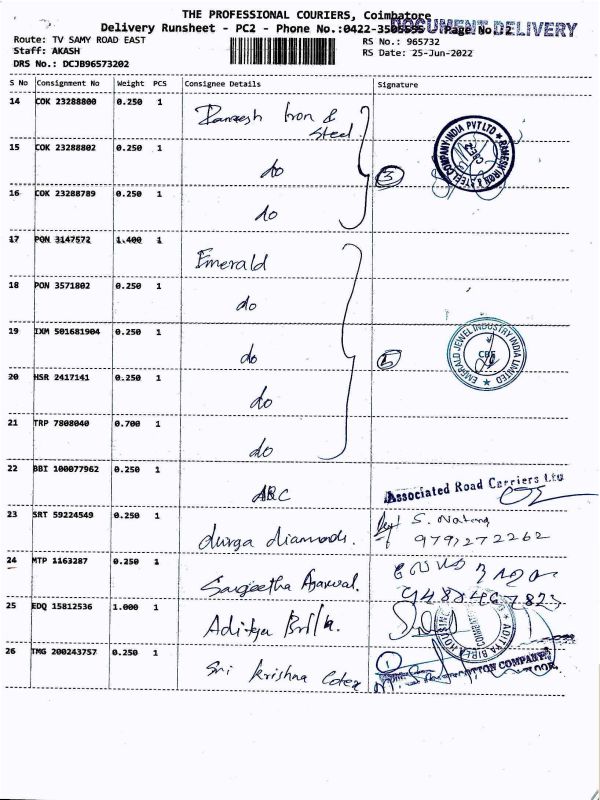 THE PROFESSIONAL COURIERS, Coimbatore
Delivery Runsheet - PC2 - Phone No.:0422-3505595 Page No. 2
DOCUMENT DELIVERY
Route: TV SAMY ROAD EAST RS No.: 965732
Staff: AKASH RS Date: 25-Jun-2022
DRS No.: DCJB96573202
S No Consignment No Weight PCS Consignee Details Signature
14 COK 23288800 0.250 1 Ramesh Iron &
Steel
15 COK 23288802 0.250 1 do
3
RAMESH IRON & STEEL COMPANY INDIA PVT LTD
16 COK 23288789 0.250 1 do
17 PON 3147572 1.400 1 Emerald
18 PON 3571802 0.250 1 do
19 IXM 501681904 0.250 1 do
EMERALD JEWEL INDUSTRY INDIA LIMITED
CBE
20 HSR 2417141 0.250 1 do
21 TRP 7808040 0.700 1 do
22 BBI 100077962 0.250 1 ARC
Associated Road Carriers Ltd
23 SRT 59224549 0.250 1 durga diamonds.
9791272262
24 MTP 1163287 0.250 1 Sangeetha Agarwal.
9488467823
25 EDQ 15812536 1.000 1 Aditya Birla.
ADITYA BIRLA HOUSING
26 TMG 200243757 0.250 1 Sri Krishna Cotex
1
COTTON COMPANY